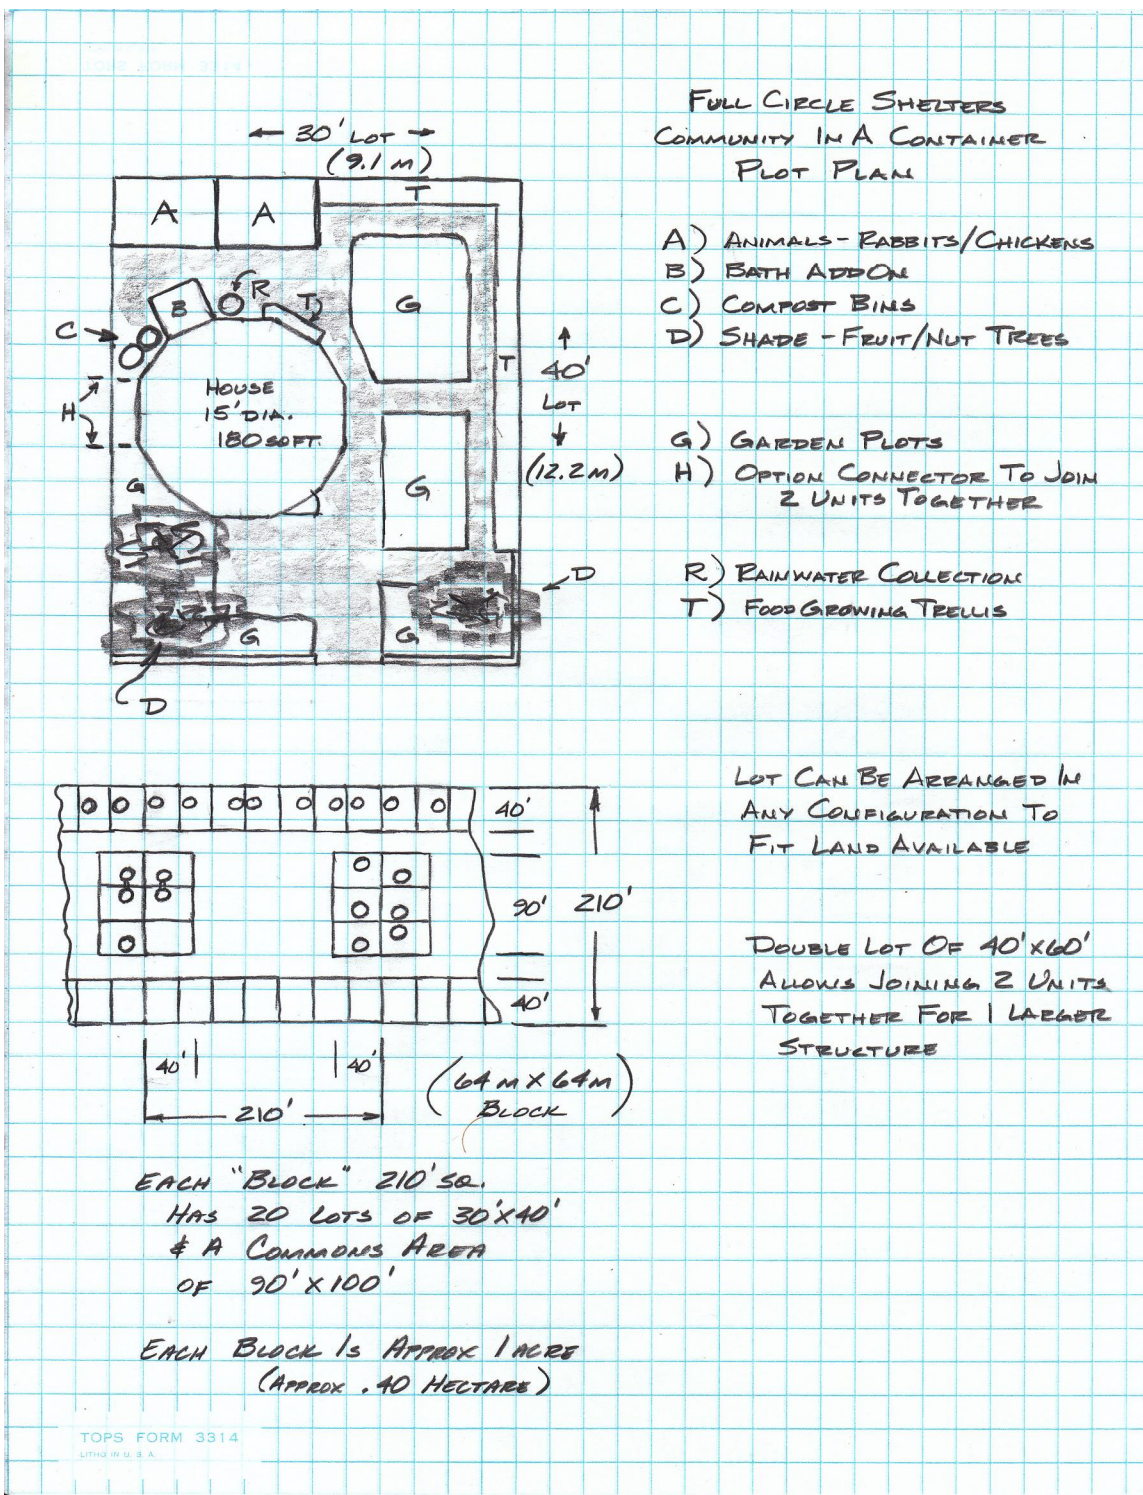 FULL CIRCLE SHELTERS
COMMUNITY IN A CONTAINER
PLOT PLAN
← 30' LOT →
(9.1 M)
T
A A
A) ANIMALS - RABBITS/CHICKENS
B) BATH ADD ON
C) COMPOST BINS
D) SHADE - FRUIT/NUT TREES
R
B
T
G
C
T
40'
LOT
(12.2 M)
H
HOUSE
15' DIA.
180 SQ FT.
G) GARDEN PLOTS
H) OPTION CONNECTOR TO JOIN
2 UNITS TOGETHER
G
G
R) RAINWATER COLLECTION
T) FOOD GROWING TRELLIS
D
G
G
D
LOT CAN BE ARRANGED IN
ANY CONFIGURATION TO
FIT LAND AVAILABLE
40'
90' 210'
40'
DOUBLE LOT OF 40'X60'
ALLOWS JOINING 2 UNITS
TOGETHER FOR 1 LARGER
STRUCTURE
40' 40'
210'
(64 M X 64 M)
BLOCK
EACH "BLOCK" 210' SQ.
HAS 20 LOTS OF 30'X40'
& A COMMONS AREA
OF 90' X 100'
EACH BLOCK IS APPROX 1 ACRE
(APPROX .40 HECTARE)
TOPS FORM 3314
LITHO IN U. S. A.